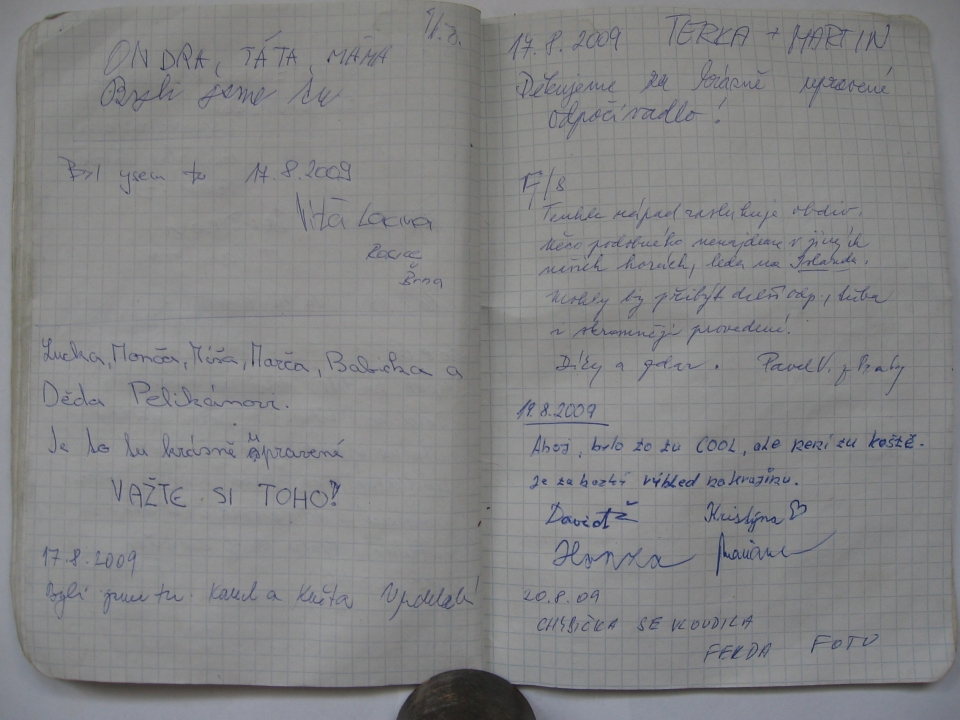 ONDRA, TÁTA, MÁMA
Byli jsme tu
Byl jsem tu 17.8.2009
Víťa Lacina
Brna
Lucka, Monča, Míša, Marča, Babička a
Děda Pelikánovi.
Je to tu krásně upravené
VAŽTE SI TOHO!
17.8.2009
Byli jsme tu. Karel a Květa
17.8.2009 TERKA + MARTIN
Děkujeme za krásně upravené
odpočívadlo!
Tenhle nápad zasluhuje obdiv.
Něco podobného nenajdeme v jiných
našich horách, leda na Islandu.
Mohly by přibýt další odp., třeba
v skromnější provedení.
Díky a Pavel V. z Prahy
19.8.2009
Ahoj, bylo to tu COOL, ale není tu koště.
Je tu hezký výhled na krajinu.
David Ž Kristýna
Hanka
20.8.09
CHYBIČKA SE VLOUDILA
FERDA FOTO